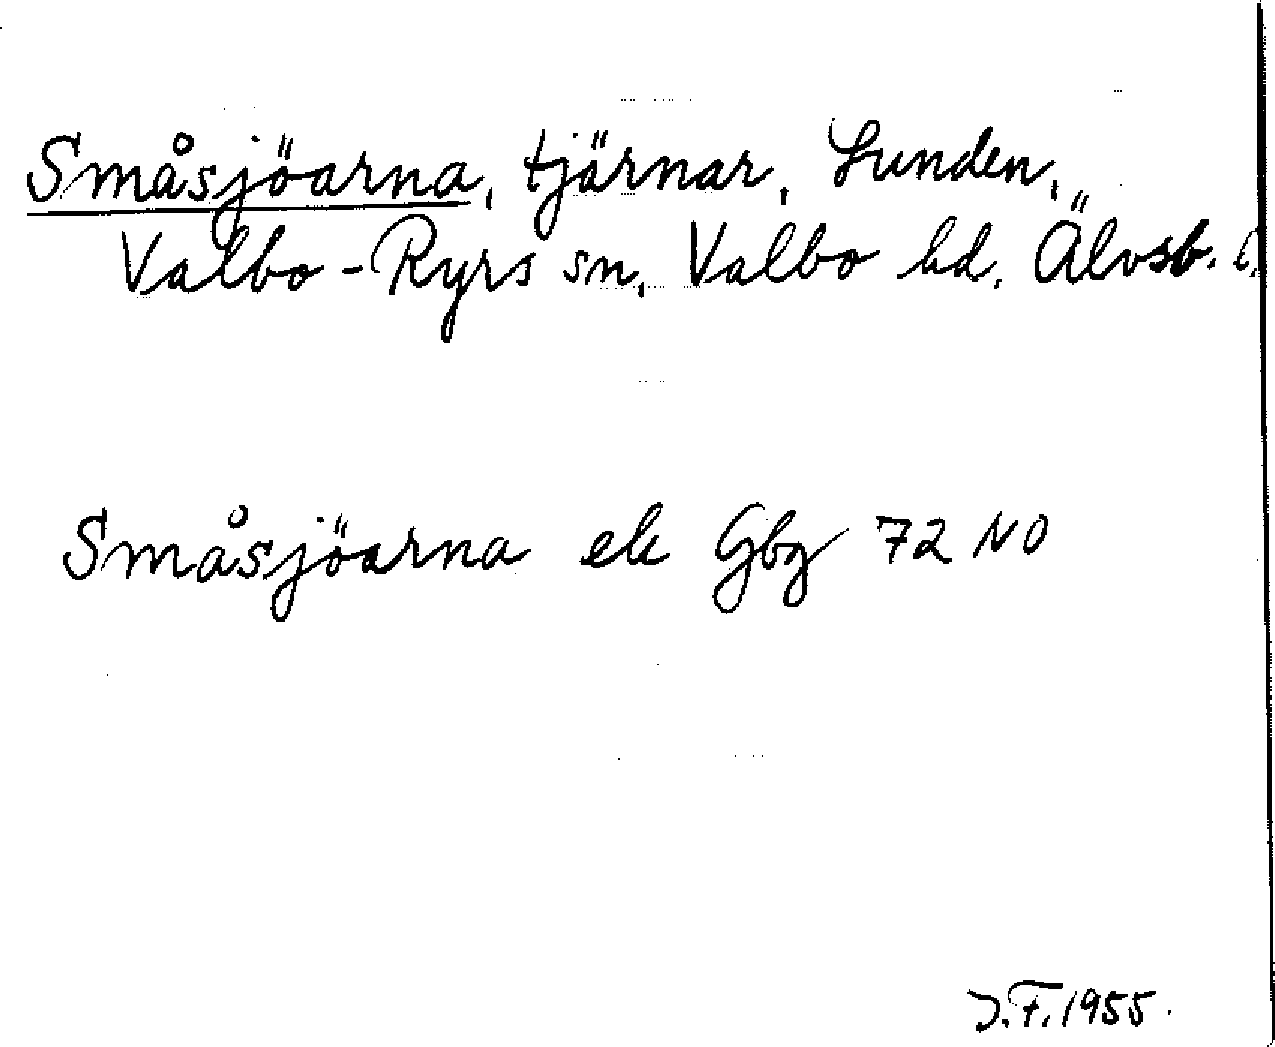 Småsjöarna, tjärnar, Lunden,
Valbo-Ryrs sn, Valbo hd. Älvsb. l.
Småsjöarna ek Gbg 72 NO
J.F. 1955.